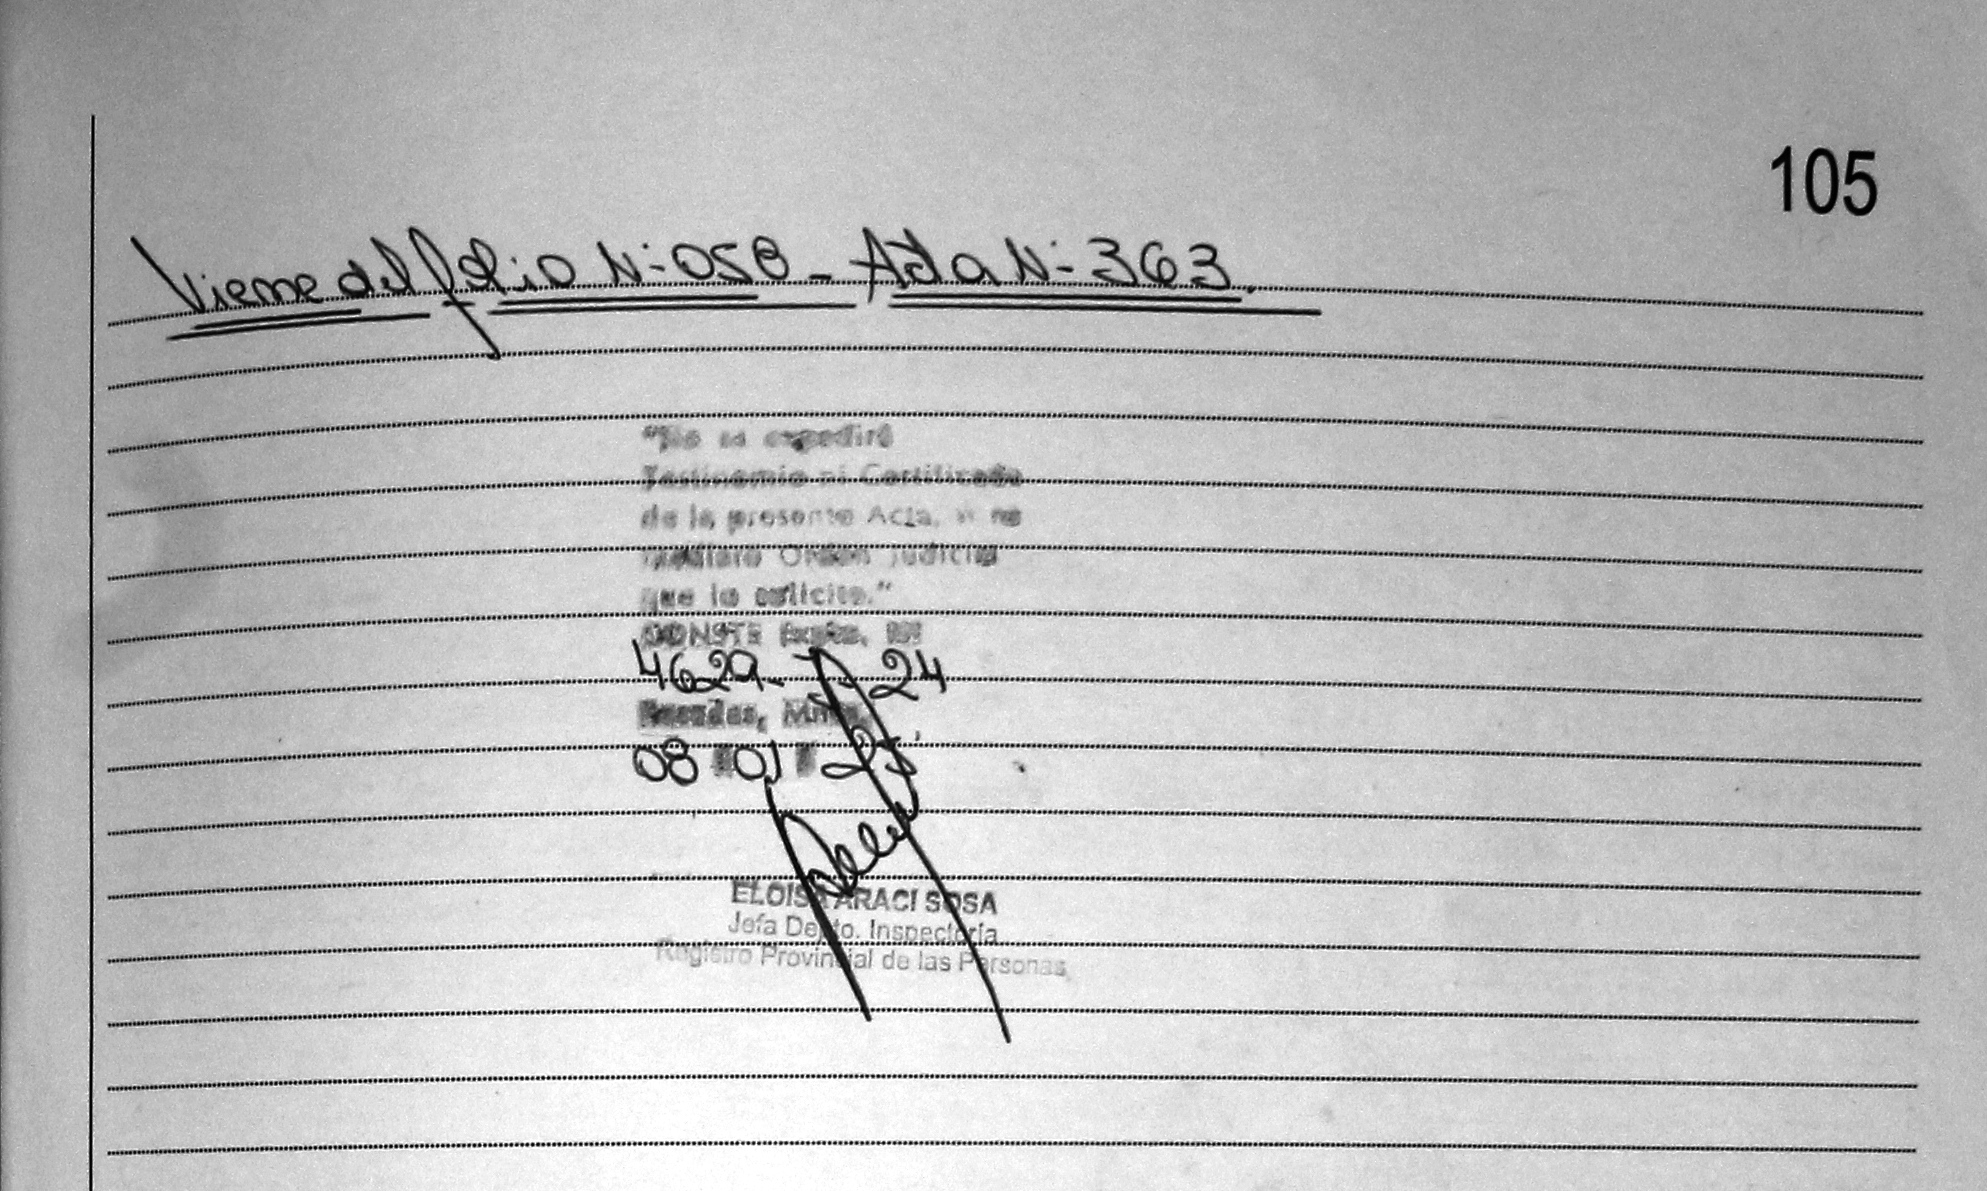 105
Viene del folio N- 058 - Acta N- 363.
"No se expedirá
Testimonio ni Certificado
de la presente Acta, si no
mediare Orden Judicial
que lo solicite."
CONSTE Expte. Nº
4629- A 24
Posadas, Mnes.
08 01 25
ELOISA ARACI SOSA
Jefa Depto. Inspectoria
Registro Provincial de las Personas